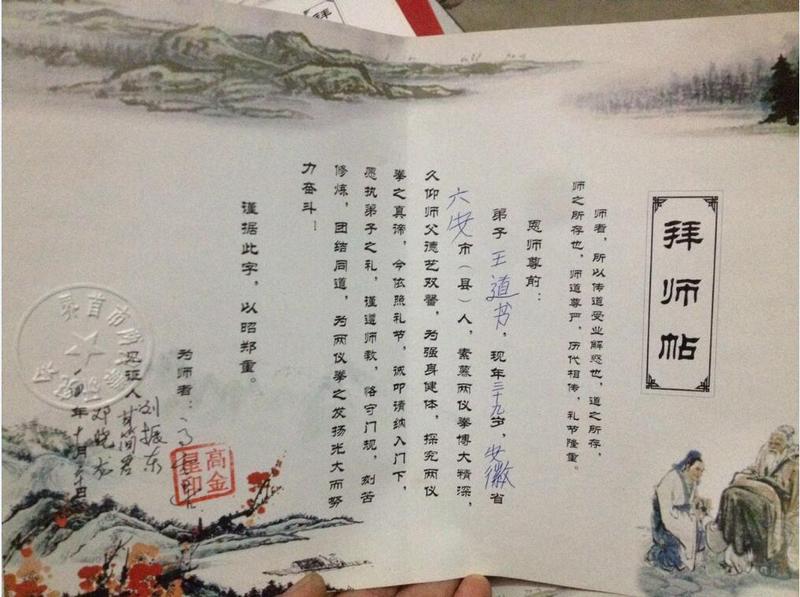 拜师帖
师者，所以传道受业解惑也，道之所存，
师之所存也，师道尊严，历代相传，礼节隆重。
恩师尊前：
弟子王道芳，现年三十九岁，安徽省
六安市（县）人，素慕两仪拳博大精深，
久仰师父德艺双馨，为强身健体，探究两仪
拳之真谛，今依照礼节，诚叩请纳入门下，
愿执弟子之礼，谨遵师教，恪守门规，刻苦
修炼，团结同道，为两仪拳之发扬光大而努
力奋斗！
谨据此字，以昭郑重。
为师者：高
高金星印
见证人
刘振东
邓晓龙
年十月